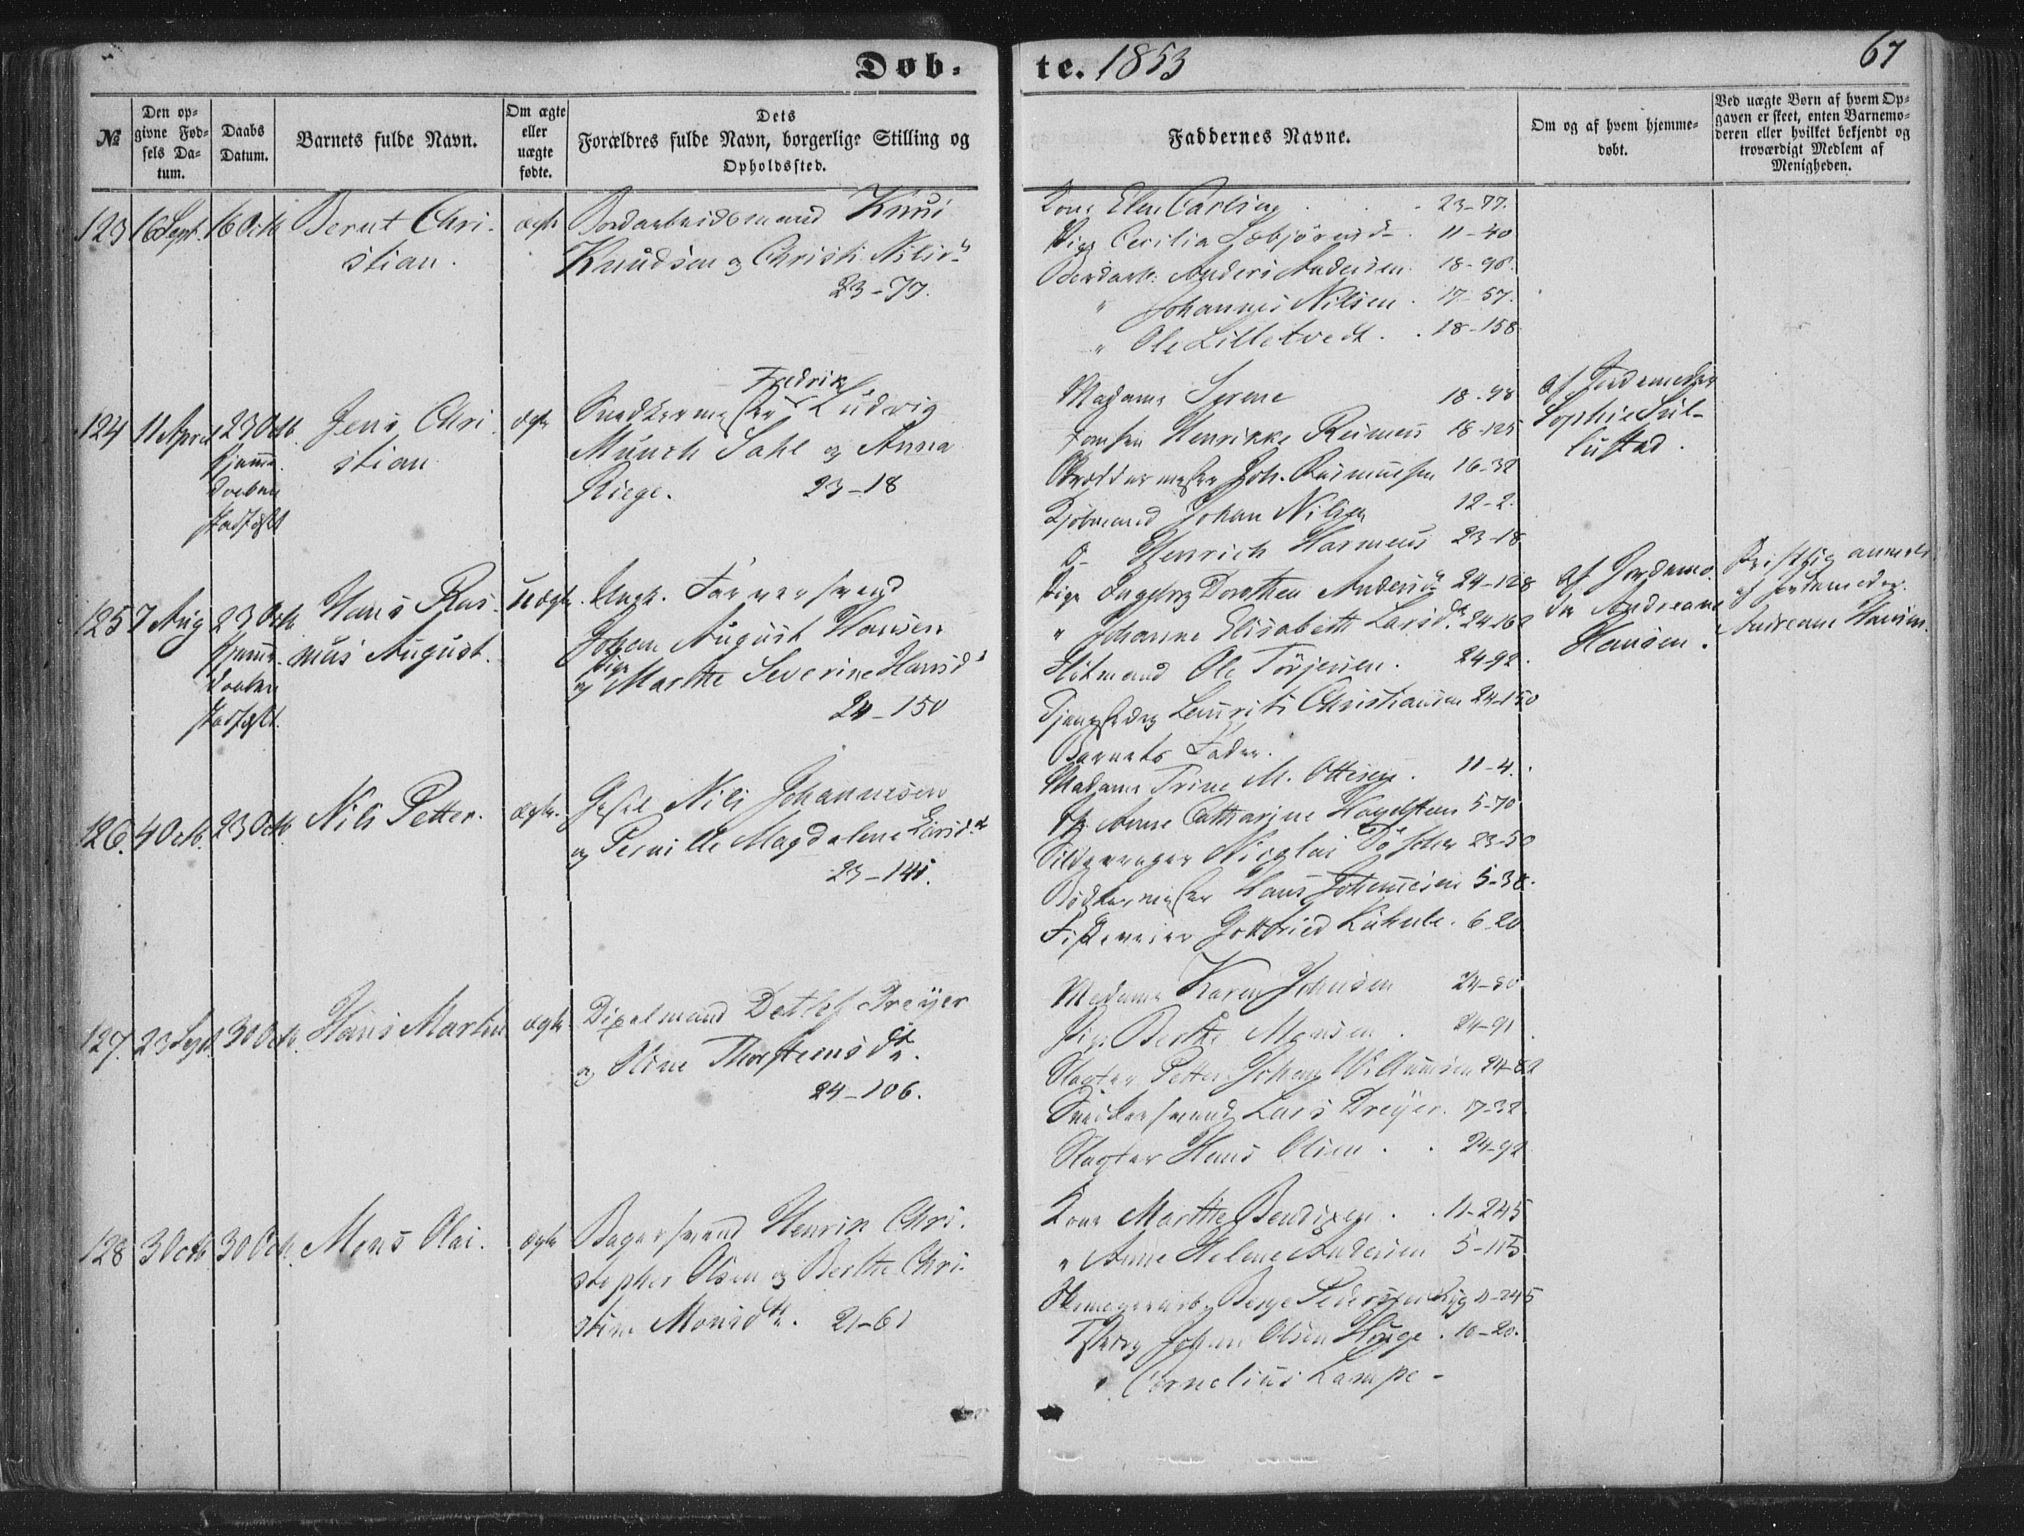 Døb-
te. 1853
67
№
Den op-
givne Fød-
sels Da-
tum.
Daabs
Datum.
Barnets fulde Navn.
Om ægte
eller
uægte
fødte.
Dets
Forældres fulde Navn, borgerlige Stilling og
Opholdssted.
Faddernes Navne.
Om og af hvem hjemme-
døbt.
Ved uægte Børn af hvem Op-
gaven er skeet, enten Barnemo-
deren eller hvilket bekjendt og
troværdigt Medlem af
Menigheden.
123 16 Sept. 16 Octb Bernt Chri-
stian.
ægte
Bordarbeidsmand Knud
Knudsen og Christi Nilsd
23-77.
Kone Elen Carlsen 23-77.
Pige Cecilia 11-40
Anders Andersen 18-98.
" Johannes Nilsen. 17-57.
" Ole Lilletvedt. 18-158
124 11 April 23 Octb.
hjemme-
daaben
stadfæst
Jens Chri-
stian
ægte
Fredrik
Snedkermester Ludvig
Munch Sahl og Anna
Riege. 23-18
Madame Syrene 18-98
Jomfru Henrikke Reimers 18-125
Joh. Rasmussen 16-32
Kjøbmand Johan Nilsen 12-2.
Do Henrich Harmens 23-18
af Jordemoder
Sophie Sul-
lustad.
125 7 Aug 23 Octb
hjemme-
daaben
stadfæst.
Hans Ras-
mus August.
uægte.
Ungk. Farversvend
Johan August Hansen
og Pige Marthe Severine Hansd
24-150
Pige Ingeborg Dorothea Andersd 24-128
" Johanne Elisabeth Larsdr. 24-162
Ole Torjersen. 24-92.
Laurits Christiansen 24-150
Barnets Fader.
af Jordemo-
der Andreane
Hansen.
Skriftlig anmeldt
af Jordemoder
Andreane Hansen.
126. 4 Octb. 23 Octb. Nils Petter.
ægte.
Nils Johannesen
og Pernille Magdalene Larsd.
23-141.
Madame Trine M. Ottesen. 11-4.
Anne Cathrine 5-70
Nicolai 23-50
Bødkermester Hans Johannesen 5-38.
Gottfried Kuhnle. 6-20
127. 23 Sept. 30 Octb. Hans Martin
ægte
Detlef Dreyer
og Oline Thorsteinsdr.
24-106.
Madame Karen Johnsen 24-50
Pige Berthe Monsen. 24-91.
Slagter Petter Johan Willumsen 24-82
Snedkersvend Lars Dreyer. 17-32.
Slagter Hans Olsen. 24-92
128 3 Octb 30 Octb. Mons Olai.
ægte
Bagersvend Henrik Chri-
stopher Olsen og Berthe Chri-
stine Monsdtr. 21-61
Kone Marthe Bendixen. 11-245
" Anne Helene Andersen 5-115
Børge Pedersen 11-245
Johan Olsen Hauge. 10-20.
" Cornelius Lampe -